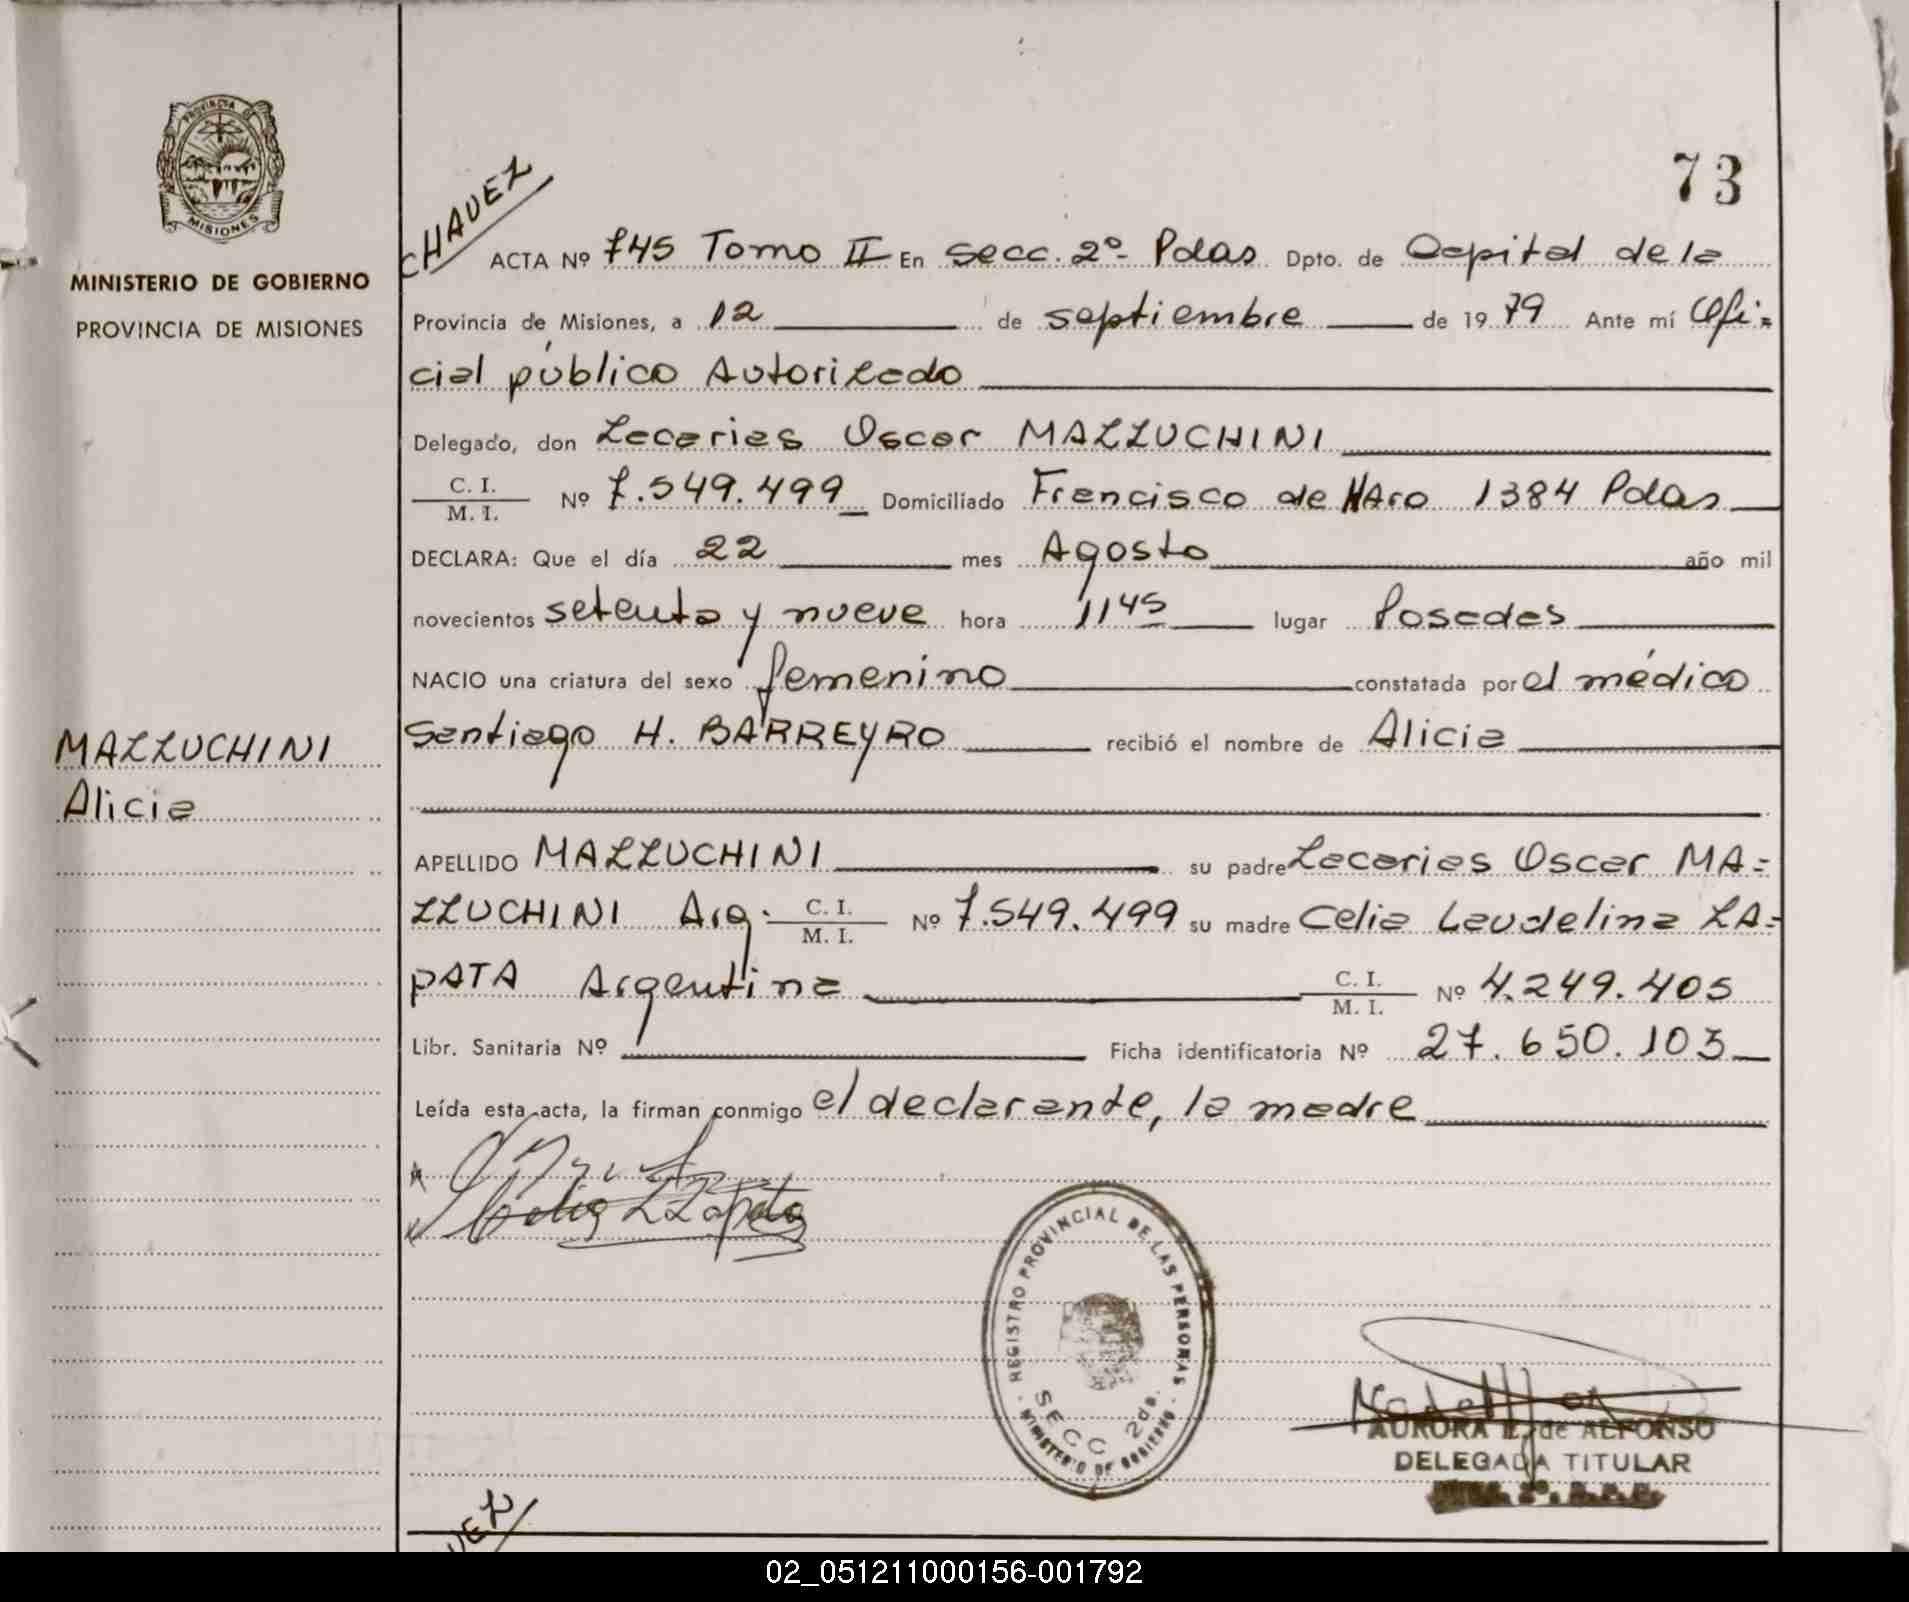 PROVINCIA
MISIONES
MINISTERIO DE GOBIERNO
PROVINCIA DE MISIONES
73
CHAVEZ
ACTA Nº 745 Tomo II En secc. 2º Pdas Dpto. de Capital de la
Provincia de Misiones, a 12 de septiembre de 1979 Ante mí Ofi=
cial público Autorizado
Delegado, don Zacarias Oscar MAZZUCHINI
C. I.
M. I.
Nº 7.549.499 Domiciliado Francisco de HAro 1384 Pdas
DECLARA: Que el día 22 mes Agosto año mil
novecientos setenta y nueve hora 1145 lugar Posadas
NACIO una criatura del sexo femenino constatada por el médico
Santiago H. BARREYRO recibió el nombre de Alicia
MAZZUCHINI
Alicia
APELLIDO MAZZUCHINI su padre Zacarias Oscar MA=
ZZUCHINI Arg. C. I.
M. I.
Nº 7.549.499 su madre Celia Laudelina ZA=
PATA Argentina C. I.
M. I.
Nº 4.249.405
Libr. Sanitaria Nº Ficha identificatoria Nº 27.650.103
Leída esta acta, la firman conmigo el declarante, la madre
Celia L Zapata
REGISTRO PROVINCIAL DE LAS PERSONAS
SECC 2da.
MINISTERIO DE GOBIERNO
AURORA de ALFONSO
DELEGADA TITULAR
02_051211000156-001792